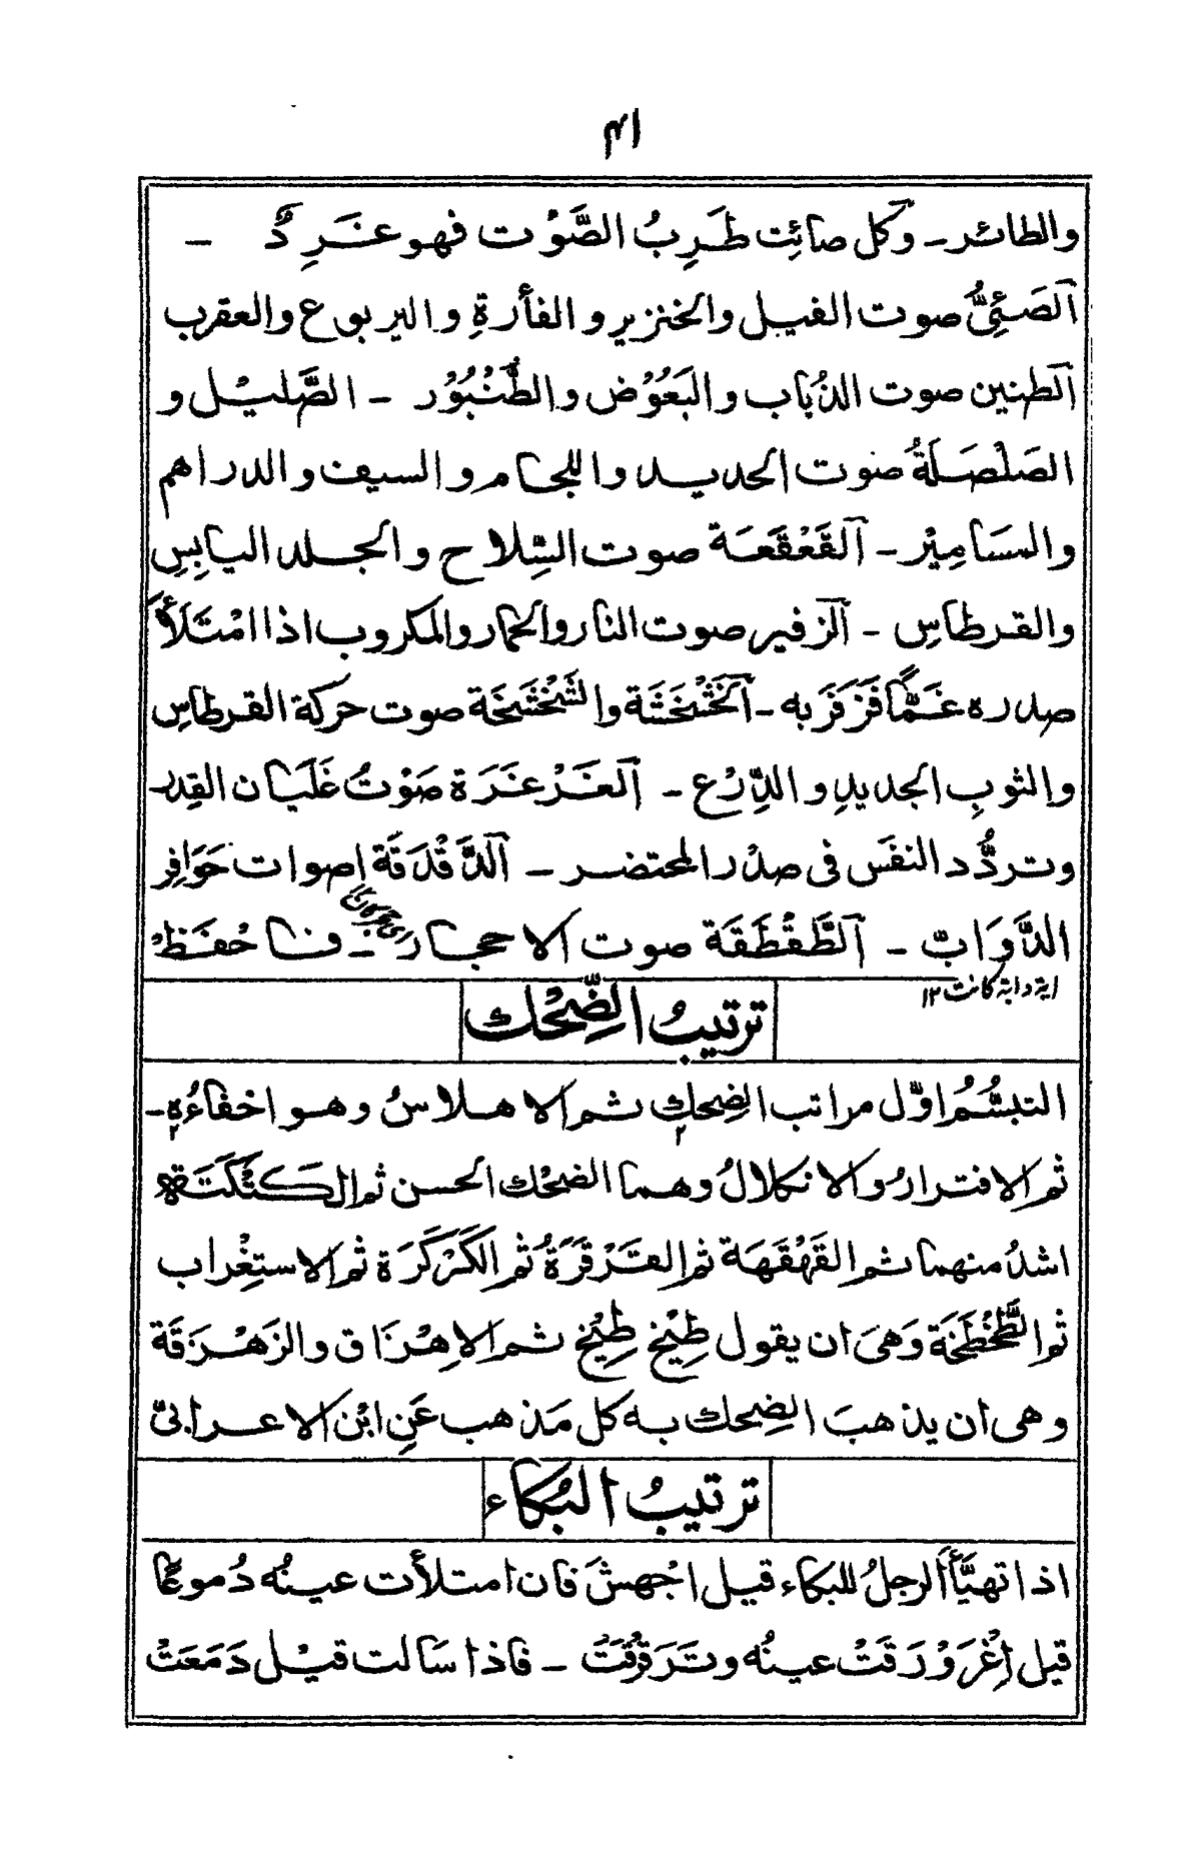 ٣١
والطائر ـ وكل صائِت طَرِبُ الصَّوْت فهو غَرِدٌ ـ
اَلصَئِیُّ صوت الفيل والخنزير و الفأرةِ و اليربوع والعقرب
اَلطنين صوت الذُباب والبَعُوْض والطُّنْبُوْر ـ الصَّلِيْل و
الصَلْصَلَةُ صوت الحديد واللجام و السيف والدراهم
والمسَامِيْر ـ اَلقَعْقَعَة صوت السِّلاح والجلد اليابِسِ
والقرطاسِ ـ اَلزفير صوت النار والحمار والمكروب اذا امْتَلَأَ
صدره غَمًّا فَزَفَرَ به ـ اَلخَشْخَشَة والشَخْشَخَة صوت حركة القرطاس
والثوبِ الجديدِ و الدِّرْع ـ اَلغَرْغَرَة صَوْتُ غَلَيَان القِدر
وتردُّد النفَس فى صدْر المحتضر ـ اَلدَّقْدَقَة اصوات حَوَافِر
الدَّوَابّ ـ اَلطَّقْطَقَة صوت الاحجار ـ فاحْفَظْ
اية دابة كانت ١٢
ترتيبُ الضِّحْك
التبسُّمُ اوَّل مراتب الضِحكِ ثم الاهلاسُ وهو اخفاءُه ـ
ثم الافترارُ والانكلالُ وهما الضحْك الحسن ثم الكَتْكَتَة
اشدُ منهما ثم القَهْقَهَة ثم القَرْقَرَةُ ثم الكَرْكَرَة ثم الاستغْراب
ثم الطَّخْطَخَة وَهیَ ان يقول طِيْخِ طِيْخِ ثم الاِهْزَاق والزَهْزَقَة
وهى ان يذهبَ الضِحك به كل مَذهب عَنِ ابْن الاعرابىّ
ترتيبُ البُكاء
اذا تهيَّأَ الرجلُ للبكاء قيل اجْهشَ فان امتلأت عينُه دُموعًا
قيل اِغْرَوْرَقَتْ عينُه وتَرَقْرَقَتْ ـ فاذا سَالت قيْل دَمَعَتْ